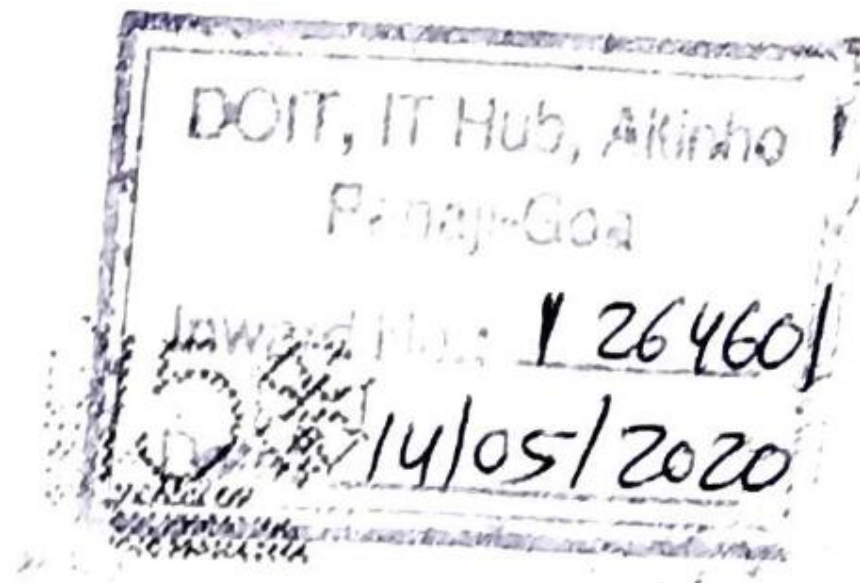 DOIT, IT Hub, Altinho
Panaji-Goa
Inward No.: 26460/
14/05/2020